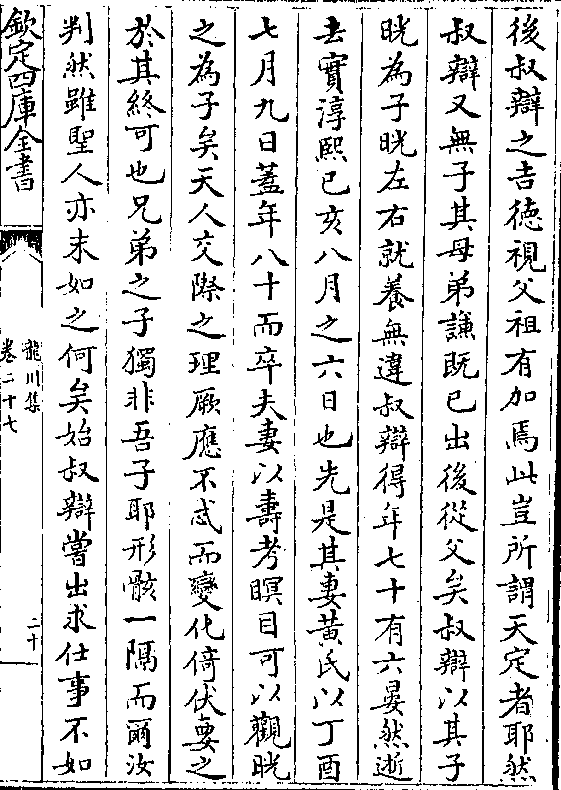 後叔辯之吉徳視父祖有加焉此豈所謂天定者耶然
叔辯又無子其母弟謙既已出後從父矣叔辯以其子
晄為子晄左右就養無違叔辯得年七十有六晏然逝
去實淳熙己亥八月之六日也先是其妻黄氏以丁酉
七月九日蓋年八十而卒夫妻以壽考瞑目可以觀晄
之為子矣天人交際之理厥應不忒而變化倚伏要之
於其終可也兄弟之子獨非吾子耶形骸一隔而爾汝
判然雖聖人亦末如之何矣始叔辯嘗出求仕事不如
欽定四庫全書
龍川集
卷二十七
二十